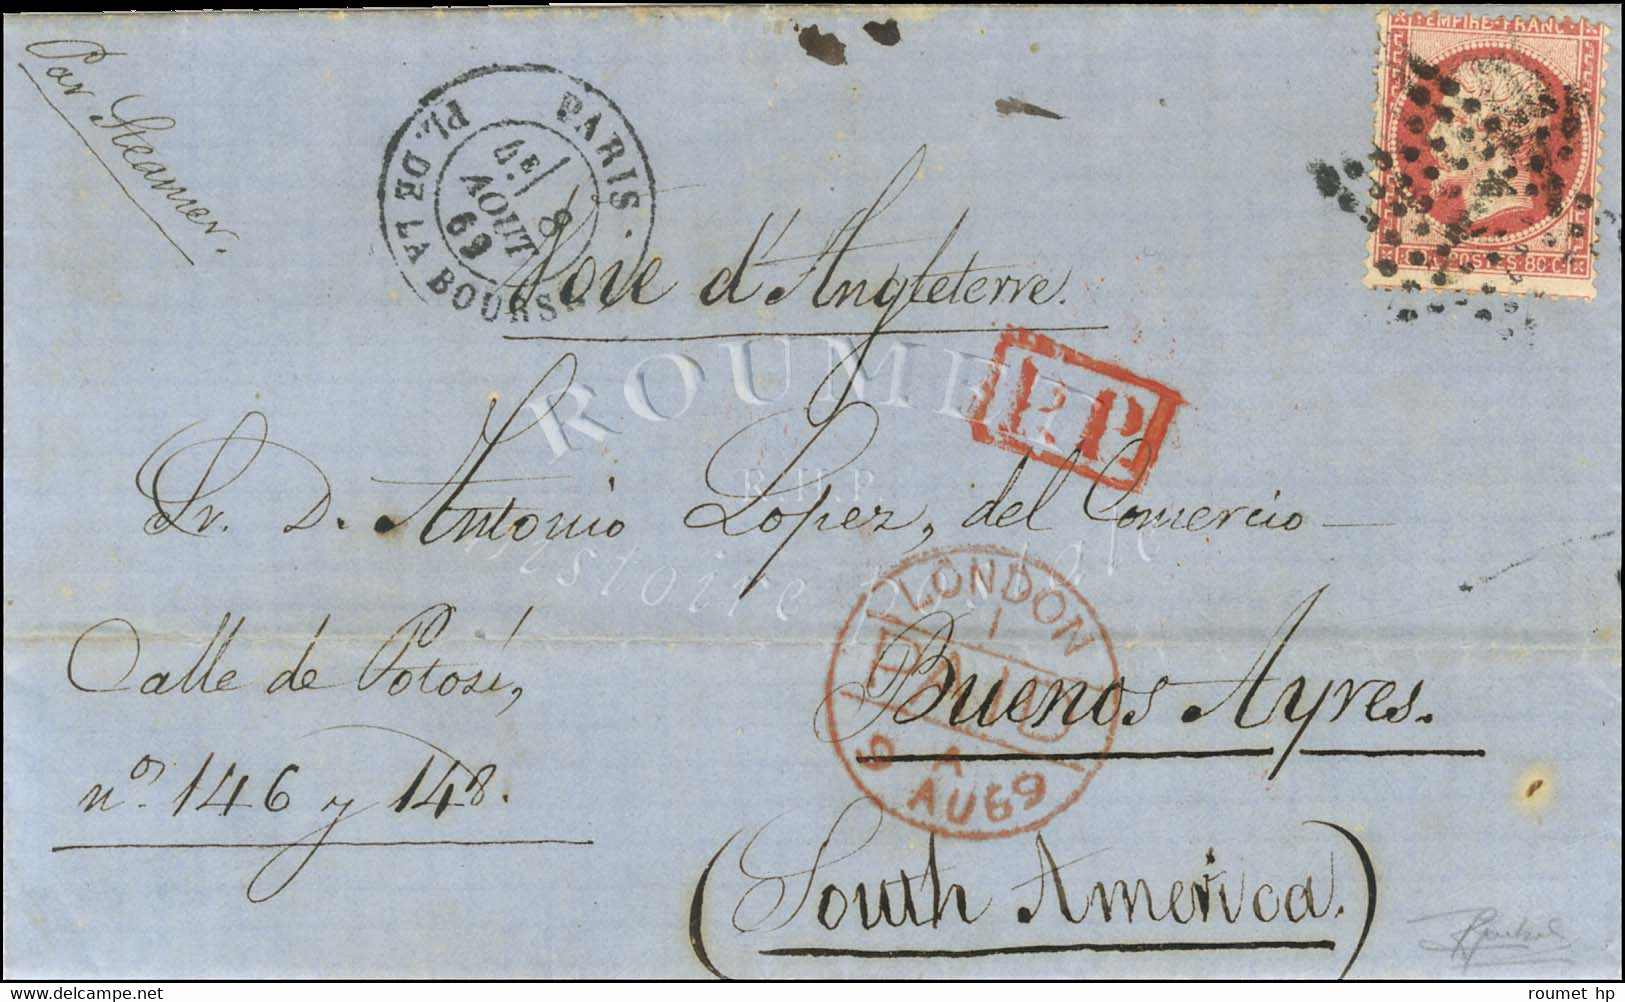 Par Steamer.
PARIS.
PL. DE LA BOURSE
4E
8
AOUT
69
EMPIRE FRANC
POSTES 80 C
Voie d'Angleterre.
ROUMET
P.P.
R.H.P.
Histoire postale
Sr. D. Antonio Lopez, del Comercio
LONDON
1
PAID
9 A
AU 69
Calle de Potosí,
Buenos Ayres.
nos. 146 y 148.
(South America.)
roumet hp